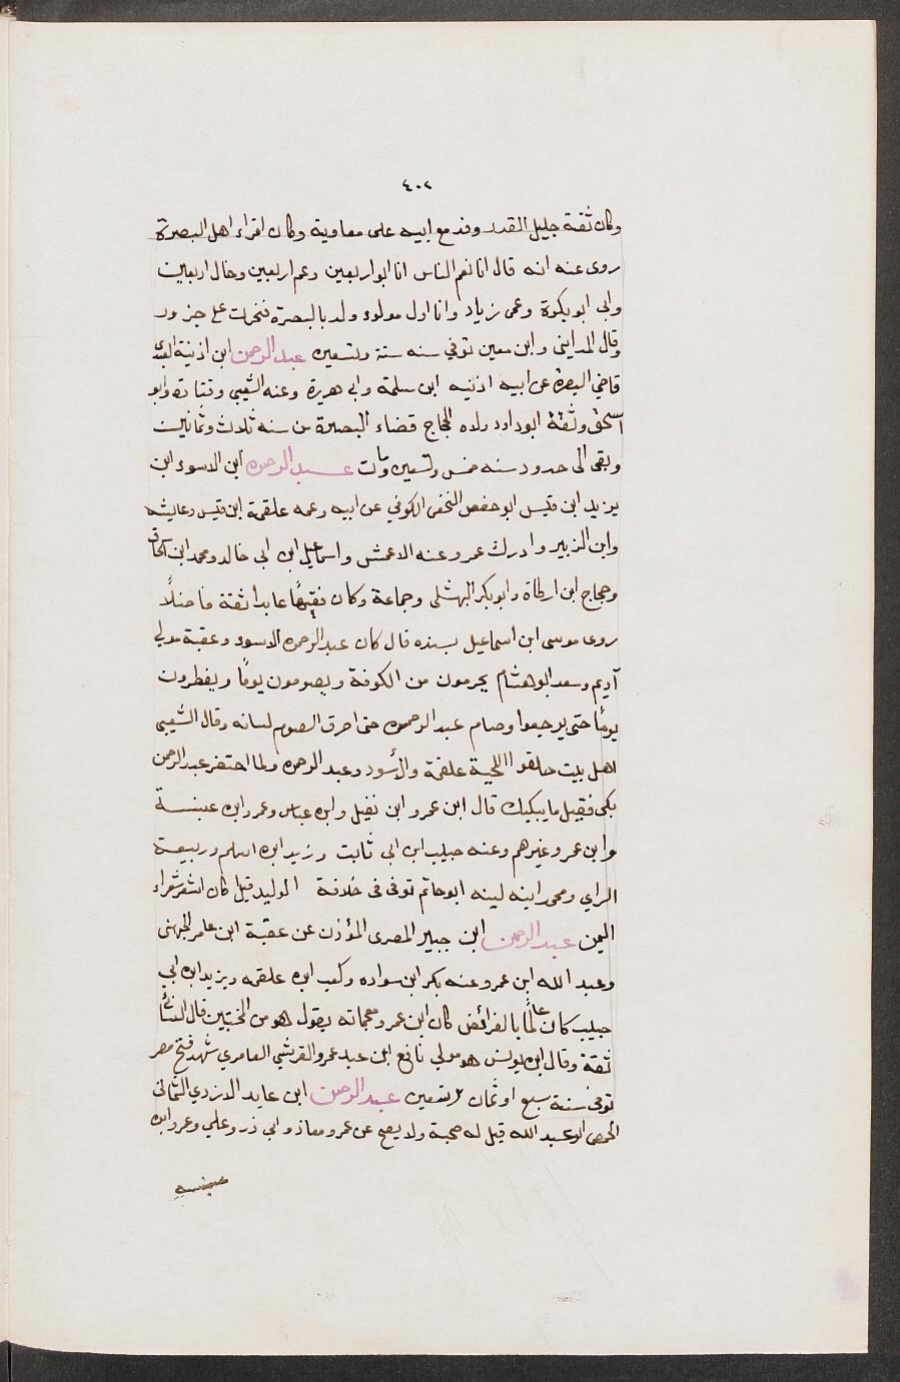 ٤٠٢
وكان ثقة جليل القدر وفد مع ابيه على معاوية وكان اقراء اهل البصرة
روى عنه انه قال انا نعم الناس انا ابو اربعين وعم اربعين وخال اربعين
وابى ابو بكرة وعمى زياد وانا اول مولود ولد بالبصرة فنحرت على جزور
وقال المدايني وابن معين توفي سنه ستة وتسعين عبد الرحمن ابن اذنية العبدى
قاضي البصرة عن ابيه اذنيه ابن سلمة وابي هريرة وعنه الشعبي وقتادة وابو
اسحق وثقة ابو داود ولاه الحجاج قضاء البصرة من سنه ثلاث وثمانين
وبقى الى حدود سنه خمس وتسعين ومات عبد الرحمن ابن الاسود ابن
يزيد ابن قيس ابو حفص النخعى الكوفي عن ابيه وعمه علقمة ابن قيس وعايشه
وابن الزبير وادرك عمر وعنه الاعمش واسماعيل ابن ابى خالد ومحمد ابن اسحاق
وحجاج ابن ارطاة وابو بكر النهشلى وجماعة وكان فقيهًا عابدا ثقة فاضلًا
روى موسى ابن اسماعيل بسنده قال كان عبد الرحمن الاسود وعقبة مولى
آديم وسعد ابو هشام يحرمون من الكوفة ويصومون يومًا ويفطرون
يومًا حتى يرجعوا وصام عبد الرحمن حتى احرق الصوم لسانه وقال الشعبى
اهل بيت خلقوا اللجنة علقمة والأسود وعبد الرحمن ولما احتضر عبد الرحمن
بكى فقيل ما يبكيك قال ابن عمرو ابن نفيل وابن عباس وعمرو ابن عبسة
وابن عمر وغيرهم وعنه حبيب ابن ابى ثابت وزيد ابن اسلم وربيعة
الراي ومحمد ابنه لينه ابو حاتم توفى فى خلافة الوليد قيل كان اشعر شعراء
اليمن عبد الرحمن ابن جبير المصرى المؤذن عن عقبة ابن عامر الجهنى
وعبد الله ابن عمر وعنه بكر ابن سواده وكعب ابن علقمه ويزيد ابن ابى
حبيب كان عالمًا بالفرائض كان ابن عمر معجبا به يقول هو من المخبتين قال النسائى
ثقة وقال ابن يونس هو مولى نافع ابن عبد عمرو القرشي العامري شهد فتح مصر
توفى سنة سبع او ثمان وتسعين عبد الرحمن ابن عايد الازدي الثمالى
الحمصى ابو عبد الله قيل له صحبة ولا يصح عن عمر ومعاذ وابى ذر وعلي وعمرو ابن
عبسه